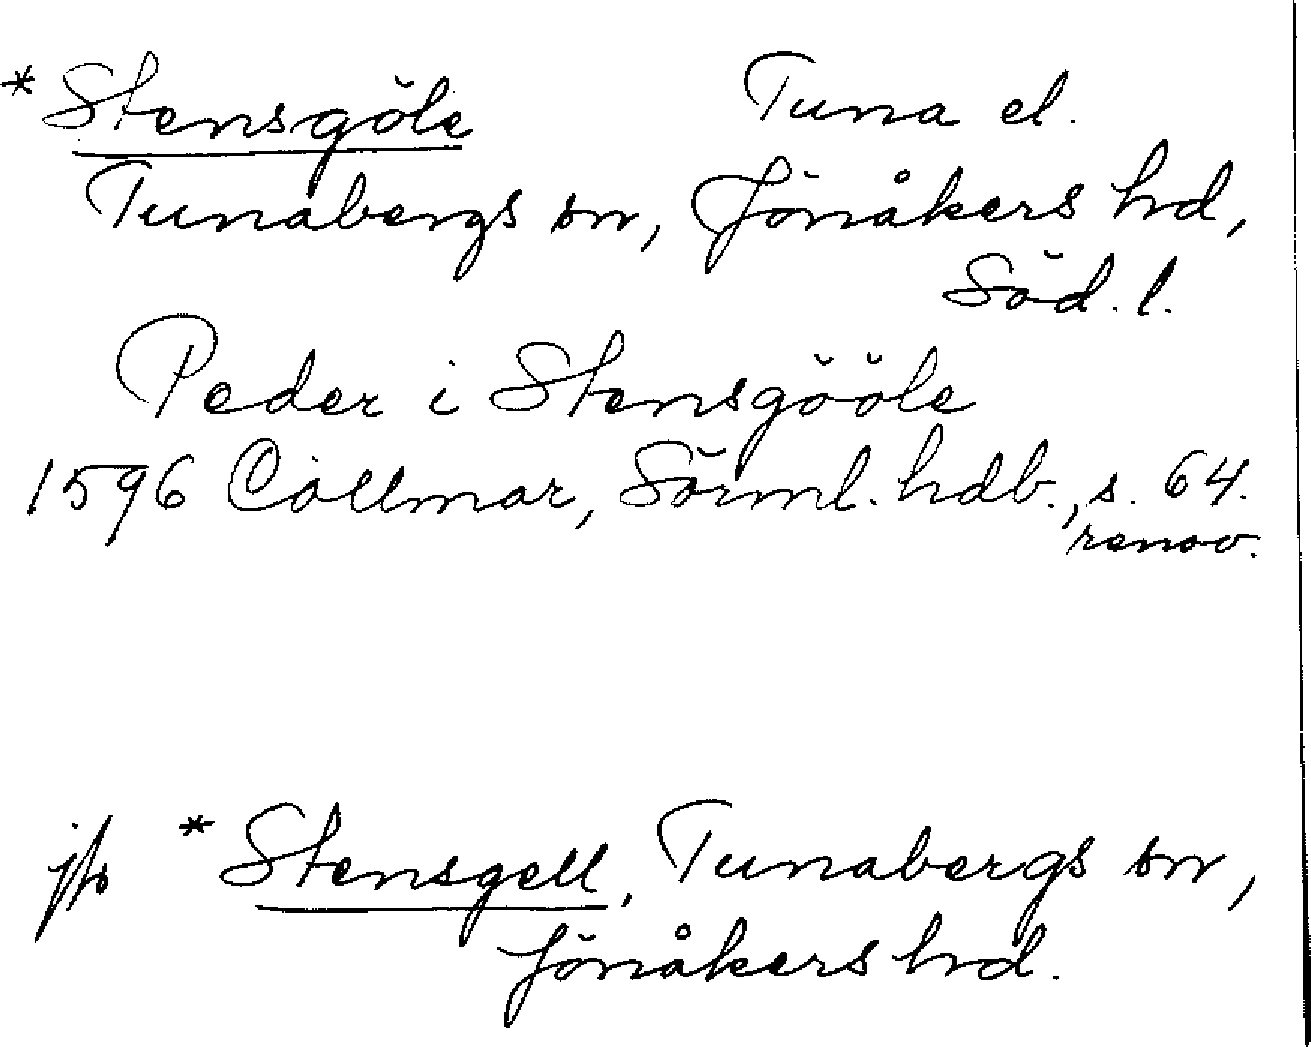 *Stensgöle Tuna el.
Tunabergs sn, Jönåkers hd,
Söd. l.
Peder i Stensgööle
1596 Collmar, Sörml. hdb., s. 64.
renov.
jfr *Stensgell, Tunabergs sn,
Jönåkers hd.